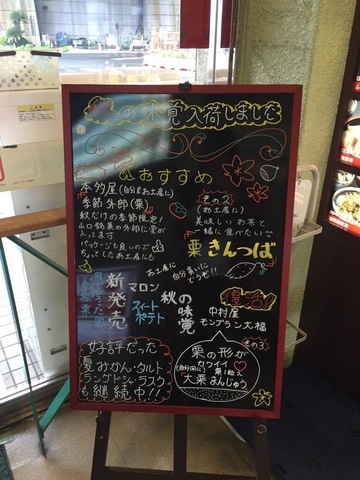 秋の味覚入荷しました
おすすめ
本多屋(自分&お土産に)
季節外郎(栗)
秋だけの季節限定!
山口銘菓の外郎に栗が
入ってます
パッケージも良いので
ちょっとしたお土産にも
その2
(お土産に)
美味しいお茶と
一緒に食べたい〜
栗きんつば
お土産に
自分買いに
どうぞ!!
新発売
マロン
スイート
ポテト
秋の
味覚
復活!!
中村屋
モンブラン大福
好評だった
夏みかん・タルト
ラングドシャ・ラスク
も継続中!!
その3
栗の形が
カワイイ
(自分用に)
栗1粒入
大栗まんじゅう